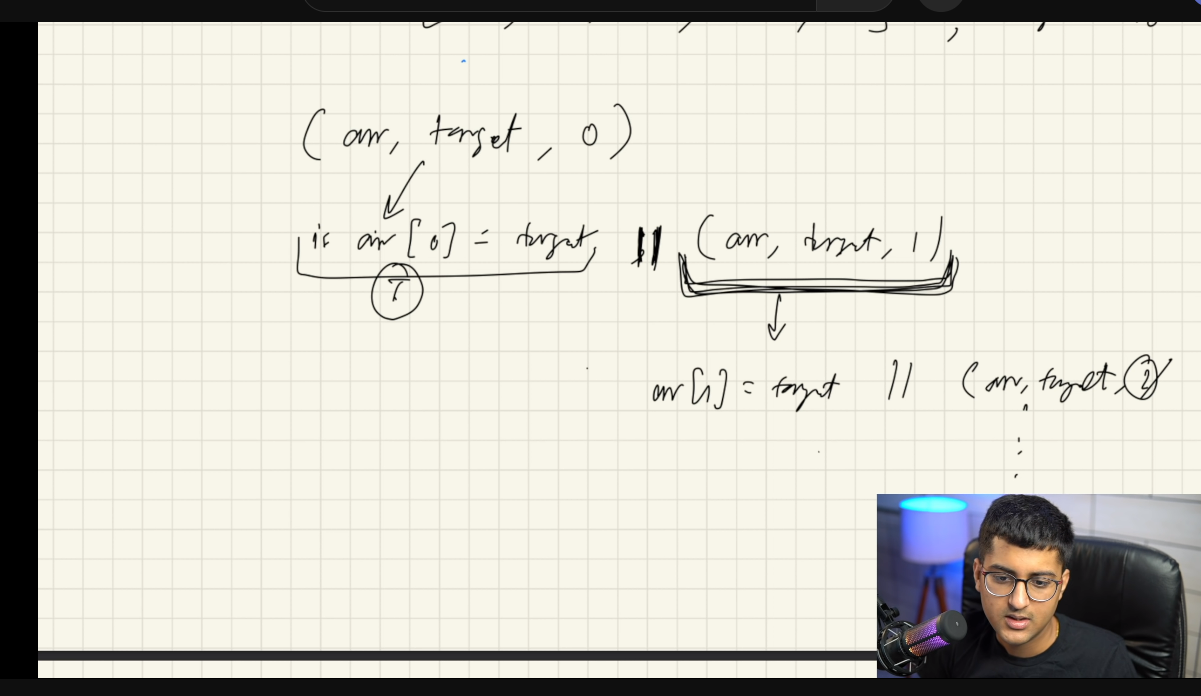 (arr, target, 0)
is arr[0] = target, || (arr, target, 1)
T
arr[1] = target || (arr, target, 2)